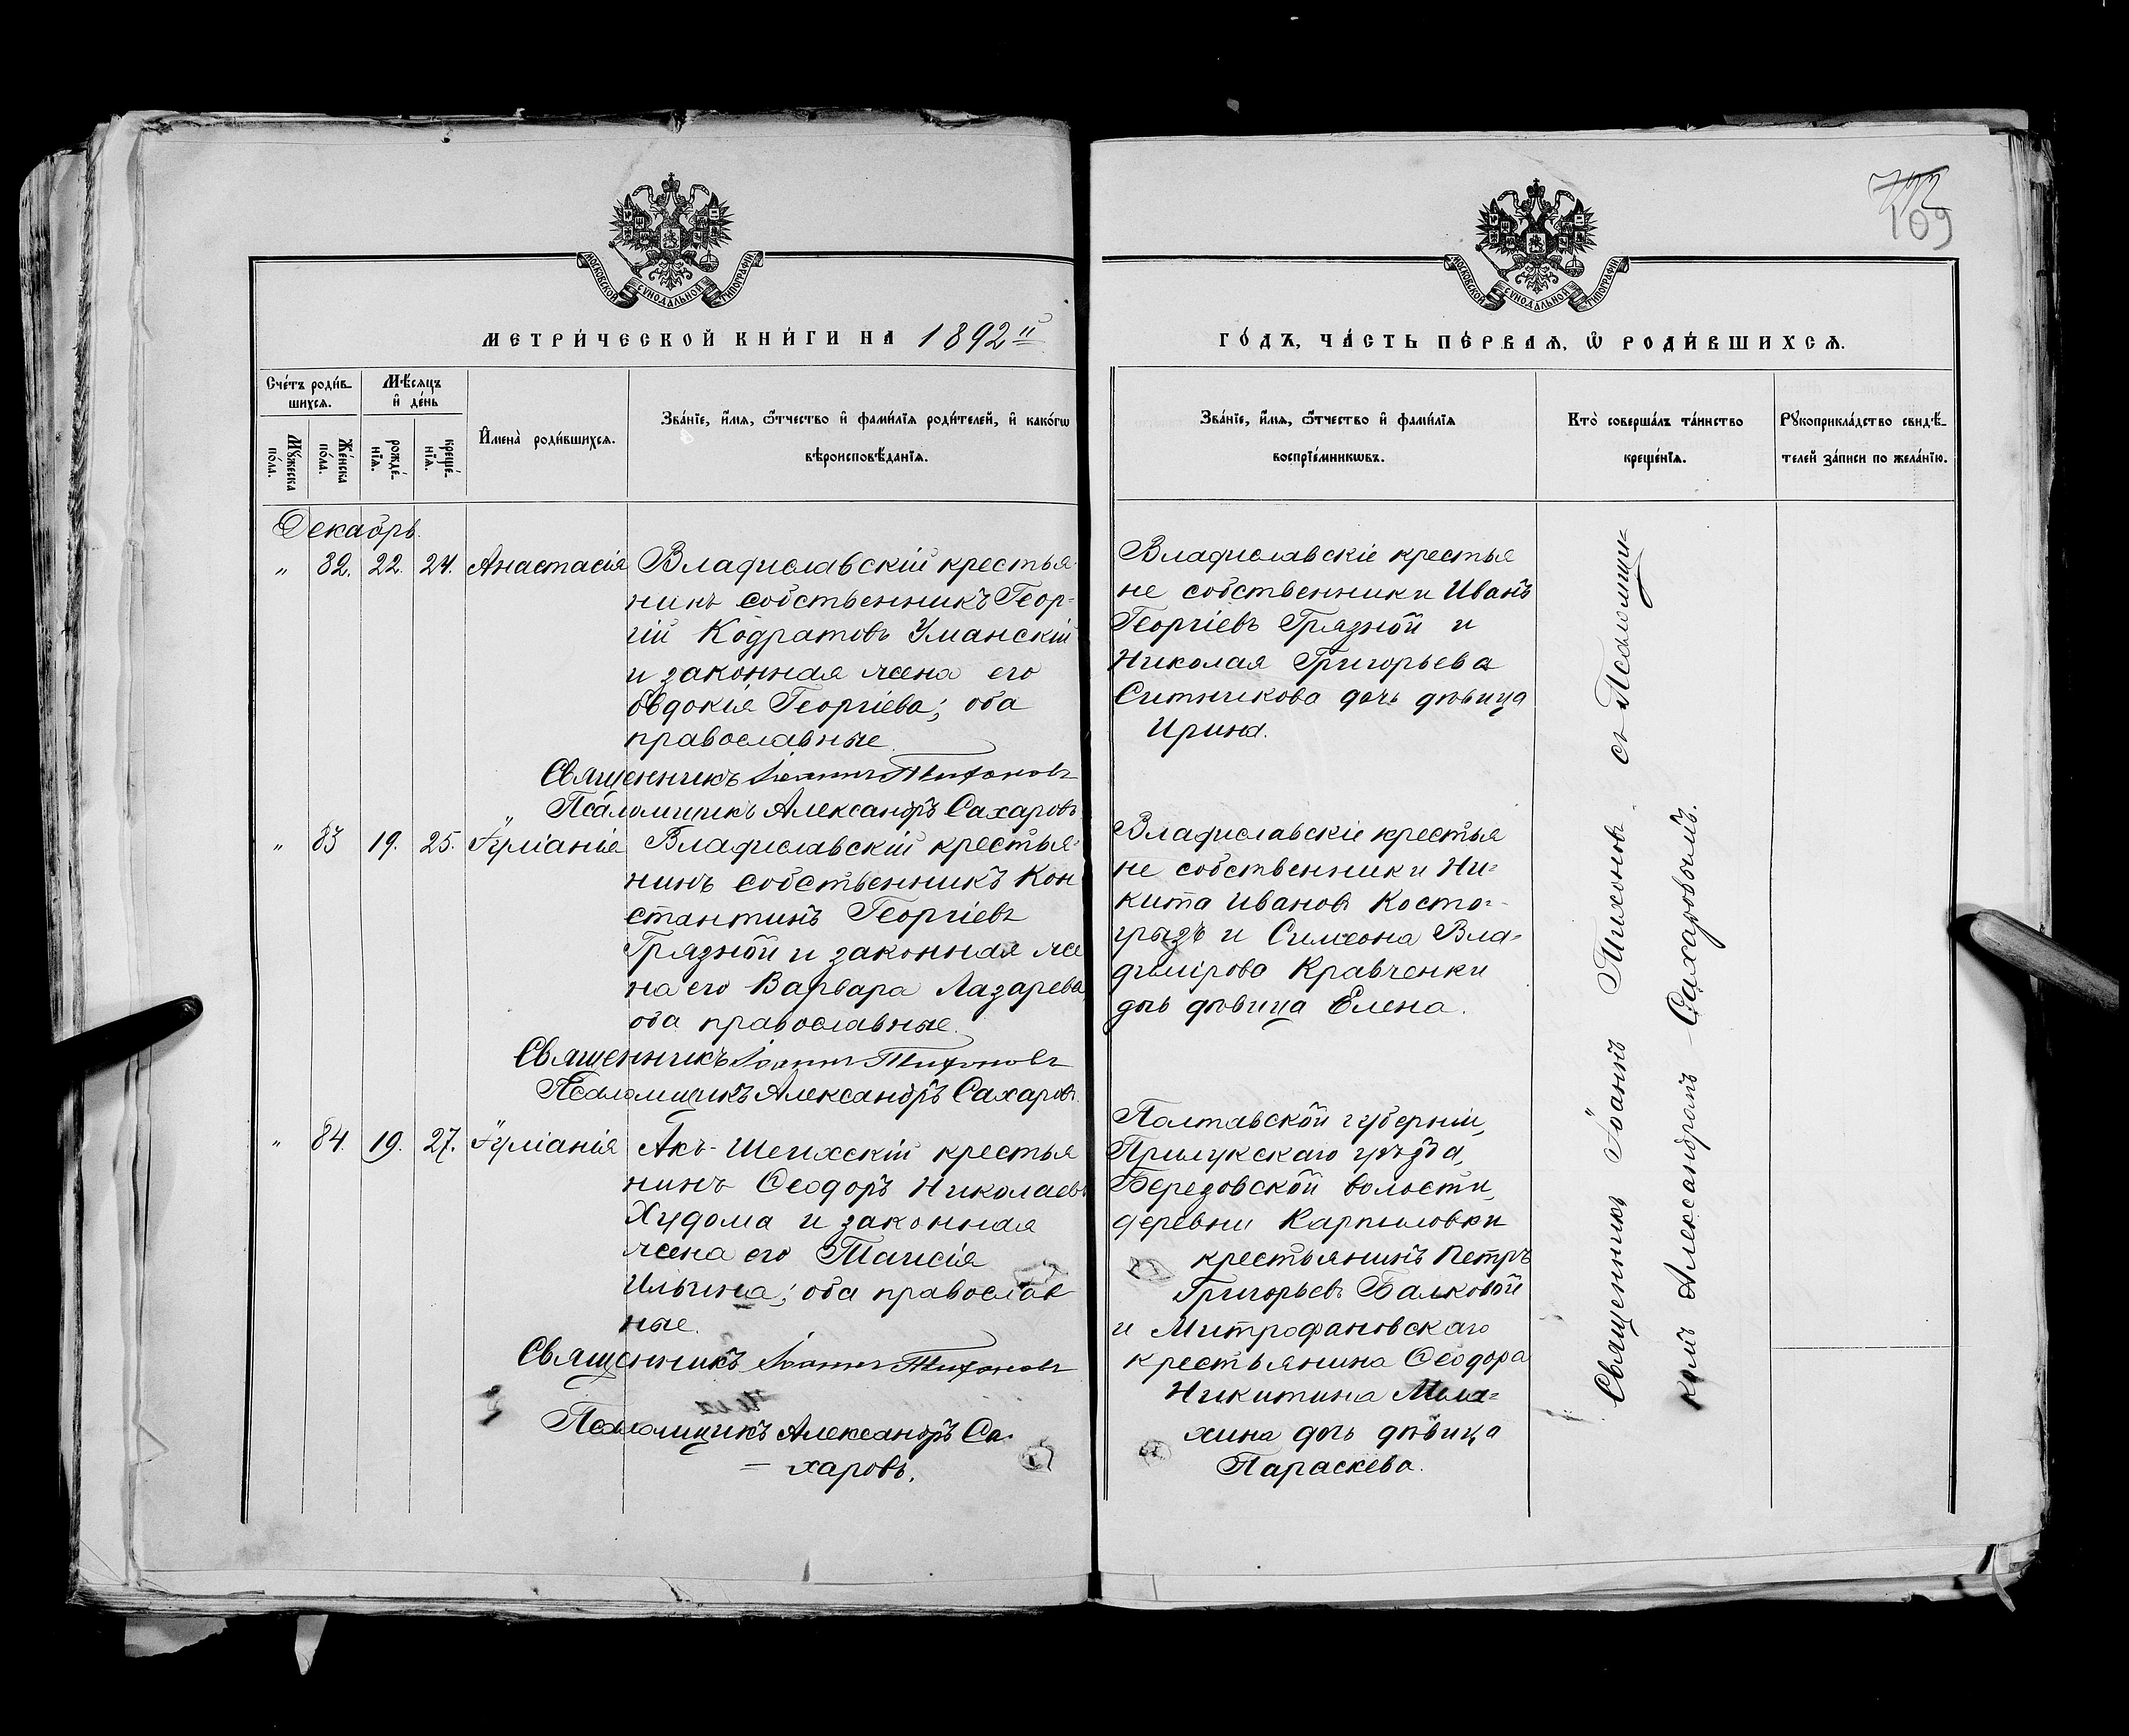 109
МОСКОВСКОЙ СѴНОДАЛЬНОЙ ТИПОГРАФІИ
МОСКОВСКОЙ СѴНОДАЛЬНОЙ ТИПОГРАФІИ
МЕТРИ́ЧЕСКОЙ КНИ́ГИ НА 1892й
ГО́ДЪ, ЧА́СТЬ ПЕ́РВАѦ, Ѡ҆ РОДИ́ВШИХСѦ.
Сче́тъ роди́в-
шихсѧ.
Мꙋ́жеска
по́ла.
Же́нска
по́ла.
Мѣ́сѧцъ
и҆ де́нь
рожде́-
нїѧ.
креще́-
нїѧ.
И҆мена̀ роди́вшихсѧ.
Зва́нїе, и҆́мѧ, ѻ҆́тчество и҆ фами́лїѧ роди́телей, и҆ како́гѡ
вѣроисповѣ́данїѧ.
Зва́нїе, и҆́мѧ, ѻ҆́тчество и҆ фами́лїѧ
воспрїе́мникѡвъ.
Кто̀ соверша́лъ та́инство
креще́нїѧ.
Рꙋкоприкла́дство свидѣ́-
телей за́писи по жела́нїю.
Декабрь.
„ 82. 22. 24. Анастасія Владиславскій крестья-
нинъ собственникъ Геор-
гій Кодратовъ Уманскій
и законная жена его
Евдокія Георгіева; оба
православные.
Священникъ Іоаннъ Тихоновъ
Псаломщикъ Александръ Сахаровъ
Владиславскіе крестья
не собственники Иванъ
Георгіевъ Грязной и
Николая Григорьева
Ситникова дочь дѣвица
Ирина.
„ 83 19. 25. Іуліанія Владиславскій крестья-
нинъ собственникъ Кон
стантинъ Георгіевъ
Грязной и законная же
на его Варвара Лазарева
оба православные.
Священникъ Іоаннъ Тихоновъ
Псаломщикъ Александръ Сахаровъ.
Владиславскіе крестья
не собственники Ни-
кита Ивановъ Косто-
грызъ и Симеона Вла-
диміровa Кравченки
дочь дѣвица Елена.
„ 84. 19. 27. Іуліанія Акъ-Шеихскій крестья
нинъ Ѳеодоръ Николаевъ
Худома и законная
жена его Таисія
Ильина; оба православ
ные.
Священникъ Іоаннъ Тихоновъ
Псаломщикъ Александръ Са-
харовъ.
Полтавской губерніи,
Прилукскаго уѣзда,
Березовской волости,
деревни Карпиловки
крестьянинъ Петръ
Григорьевъ Балковой
и Митрофановскаго
крестьянина Ѳеодора
Никитина Мала-
хина дочь дѣвица
Параскева.
Священникъ Іоаннъ Тихоновъ съ Псаломщи-
комъ Александромъ Сахаровымъ.